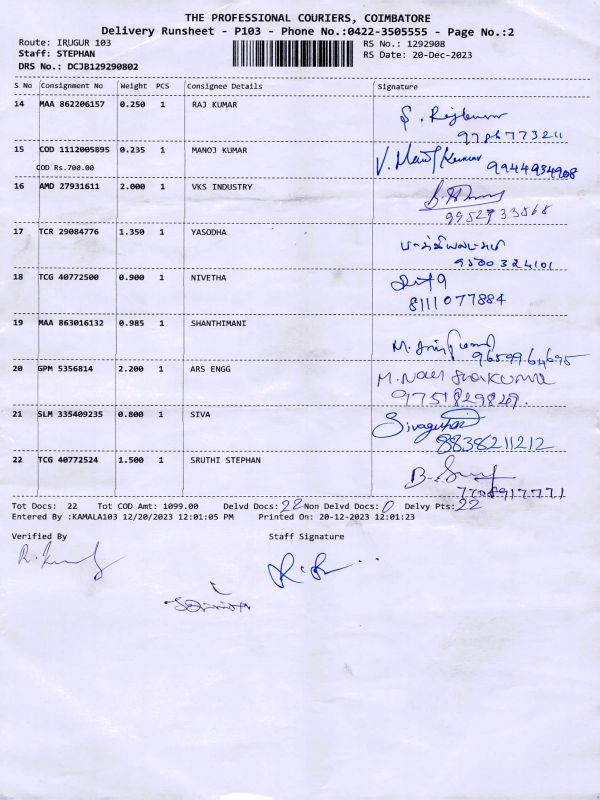 THE PROFESSIONAL COURIERS, COIMBATORE
Delivery Runsheet - P103 - Phone No.:0422-3505555 - Page No.:2
Route: IRUGUR 103 RS No.: 1292908
Staff: STEPHAN RS Date: 20-Dec-2023
DRS No.: DCJB129290802
S No Consignment No Weight PCS Consignee Details Signature
14 MAA 862206157 0.250 1 RAJ KUMAR
15 COD 1112005895 0.235 1 MANOJ KUMAR V. Manoj Kumar 9944934908
COD Rs.700.00
16 AMD 27931611 2.000 1 VKS INDUSTRY
9952933568
17 TCR 29084776 1.350 1 YASODHA
9500324101
18 TCG 40772500 0.900 1 NIVETHA
8111077884
19 MAA 863016132 0.985 1 SHANTHIMANI
9659964695
20 GPM 5356814 2.200 1 ARS ENGG
9751829829
21 SLM 335409235 0.800 1 SIVA
8838211212
22 TCG 40772524 1.500 1 SRUTHI STEPHAN
7708917771
Tot Docs: 22 Tot COD Amt: 1099.00 Delvd Docs: 22 Non Delvd Docs: 0 Delvy Pts: 22
Entered By :KAMALA103 12/20/2023 12:01:05 PM Printed On: 20-12-2023 12:01:23
Verified By Staff Signature